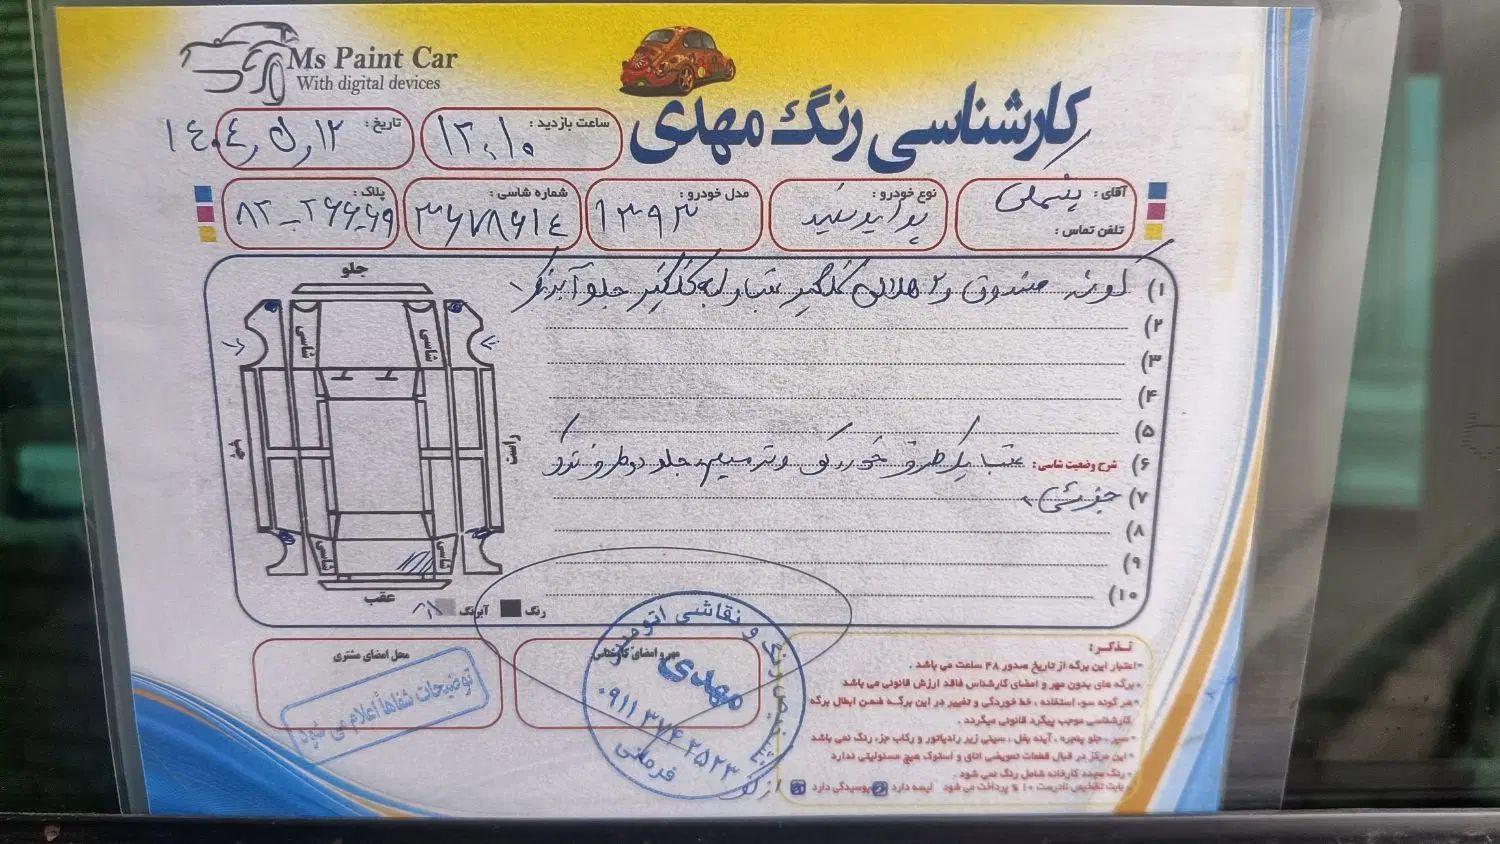 Ms Paint Car
With digital devices
کارشناسی رنگ مهدی
ساعت بازدید : ۱۲،۱۰
تاریخ :
آقای :
نوع خودرو : پراید سفید
مدل خودرو : ۱۳۹۳
شماره شاسی : ۳۶۷۸۶۱٤
پلاک : ۸۲ـ
تلفن تماس :
جلو
۱) گوشه صندوق و ۲ هلالی گلگیر عقب و لبه گلگیر جلو آبرنگ
۲)
۳)
۴)
۵)
۶) شرح وضعیت شاسی : عقب یکطرف خوردگی و ترمیم، جلو دو طرف
۷) جزئی
۸)
۹)
۱۰)
شاسی شاسی
راست
چپ
شاسی شاسی
عقب
رنگ آبرنگ
مهر و امضای کارشناس
محل امضای مشتری
توضیحات شفاها اعلام می شود
تشخیص رنگ و نقاشی اتومبیل
مهدی
۰۹۱۱ ۳۷۴ ۲۵۲۳
فرمانی
تذکر :
•اعتبار این برگه از تاریخ صدور ۴۸ ساعت می باشد .
•برگه های بدون مهر و امضای کارشناس فاقد ارزش قانونی می باشد
•هر گونه سوء استفاده ، خط خوردگی و تغییر در این برگه ضمن ابطال برگه
کارشناسی موجب پیگرد قانونی میگردد .
•سپر ، جلو پنجره ، آینه بغل ، سینی زیر رادیاتور و رکاب جزء رنگ نمی باشد
•این مرکز در قبال قطعات تعویضی اتاق و استوک هیچ مسئولیتی ندارد
•رنگ مجدد کارخانه شامل رنگ نمی شود .
•بابت تشخیص نادرست ۱۰ % پرداخت می شود لیسه دارد پوسیدگی دارد